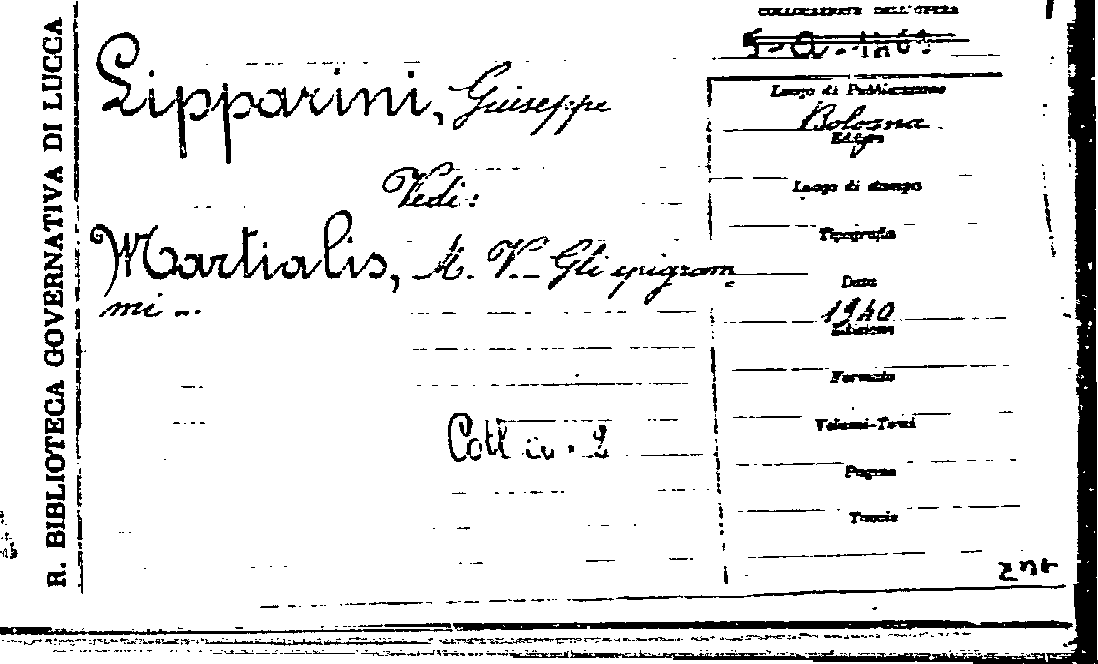 R. BIBLIOTECA GOVERNATIVA DI LUCCA
COLLOCAZIONE DELL'OPERA
Lipparini, Giuseppe
Vedi:
Martialis, M. V. - Gli epigram
mi ...
Coll. 2
Luogo di Pubblicazione
Bologna
Editore
Luogo di stampa
Tipografia
Data
1940
Edizione
Formato
Volumi-Tomi
Pagine
Tavole